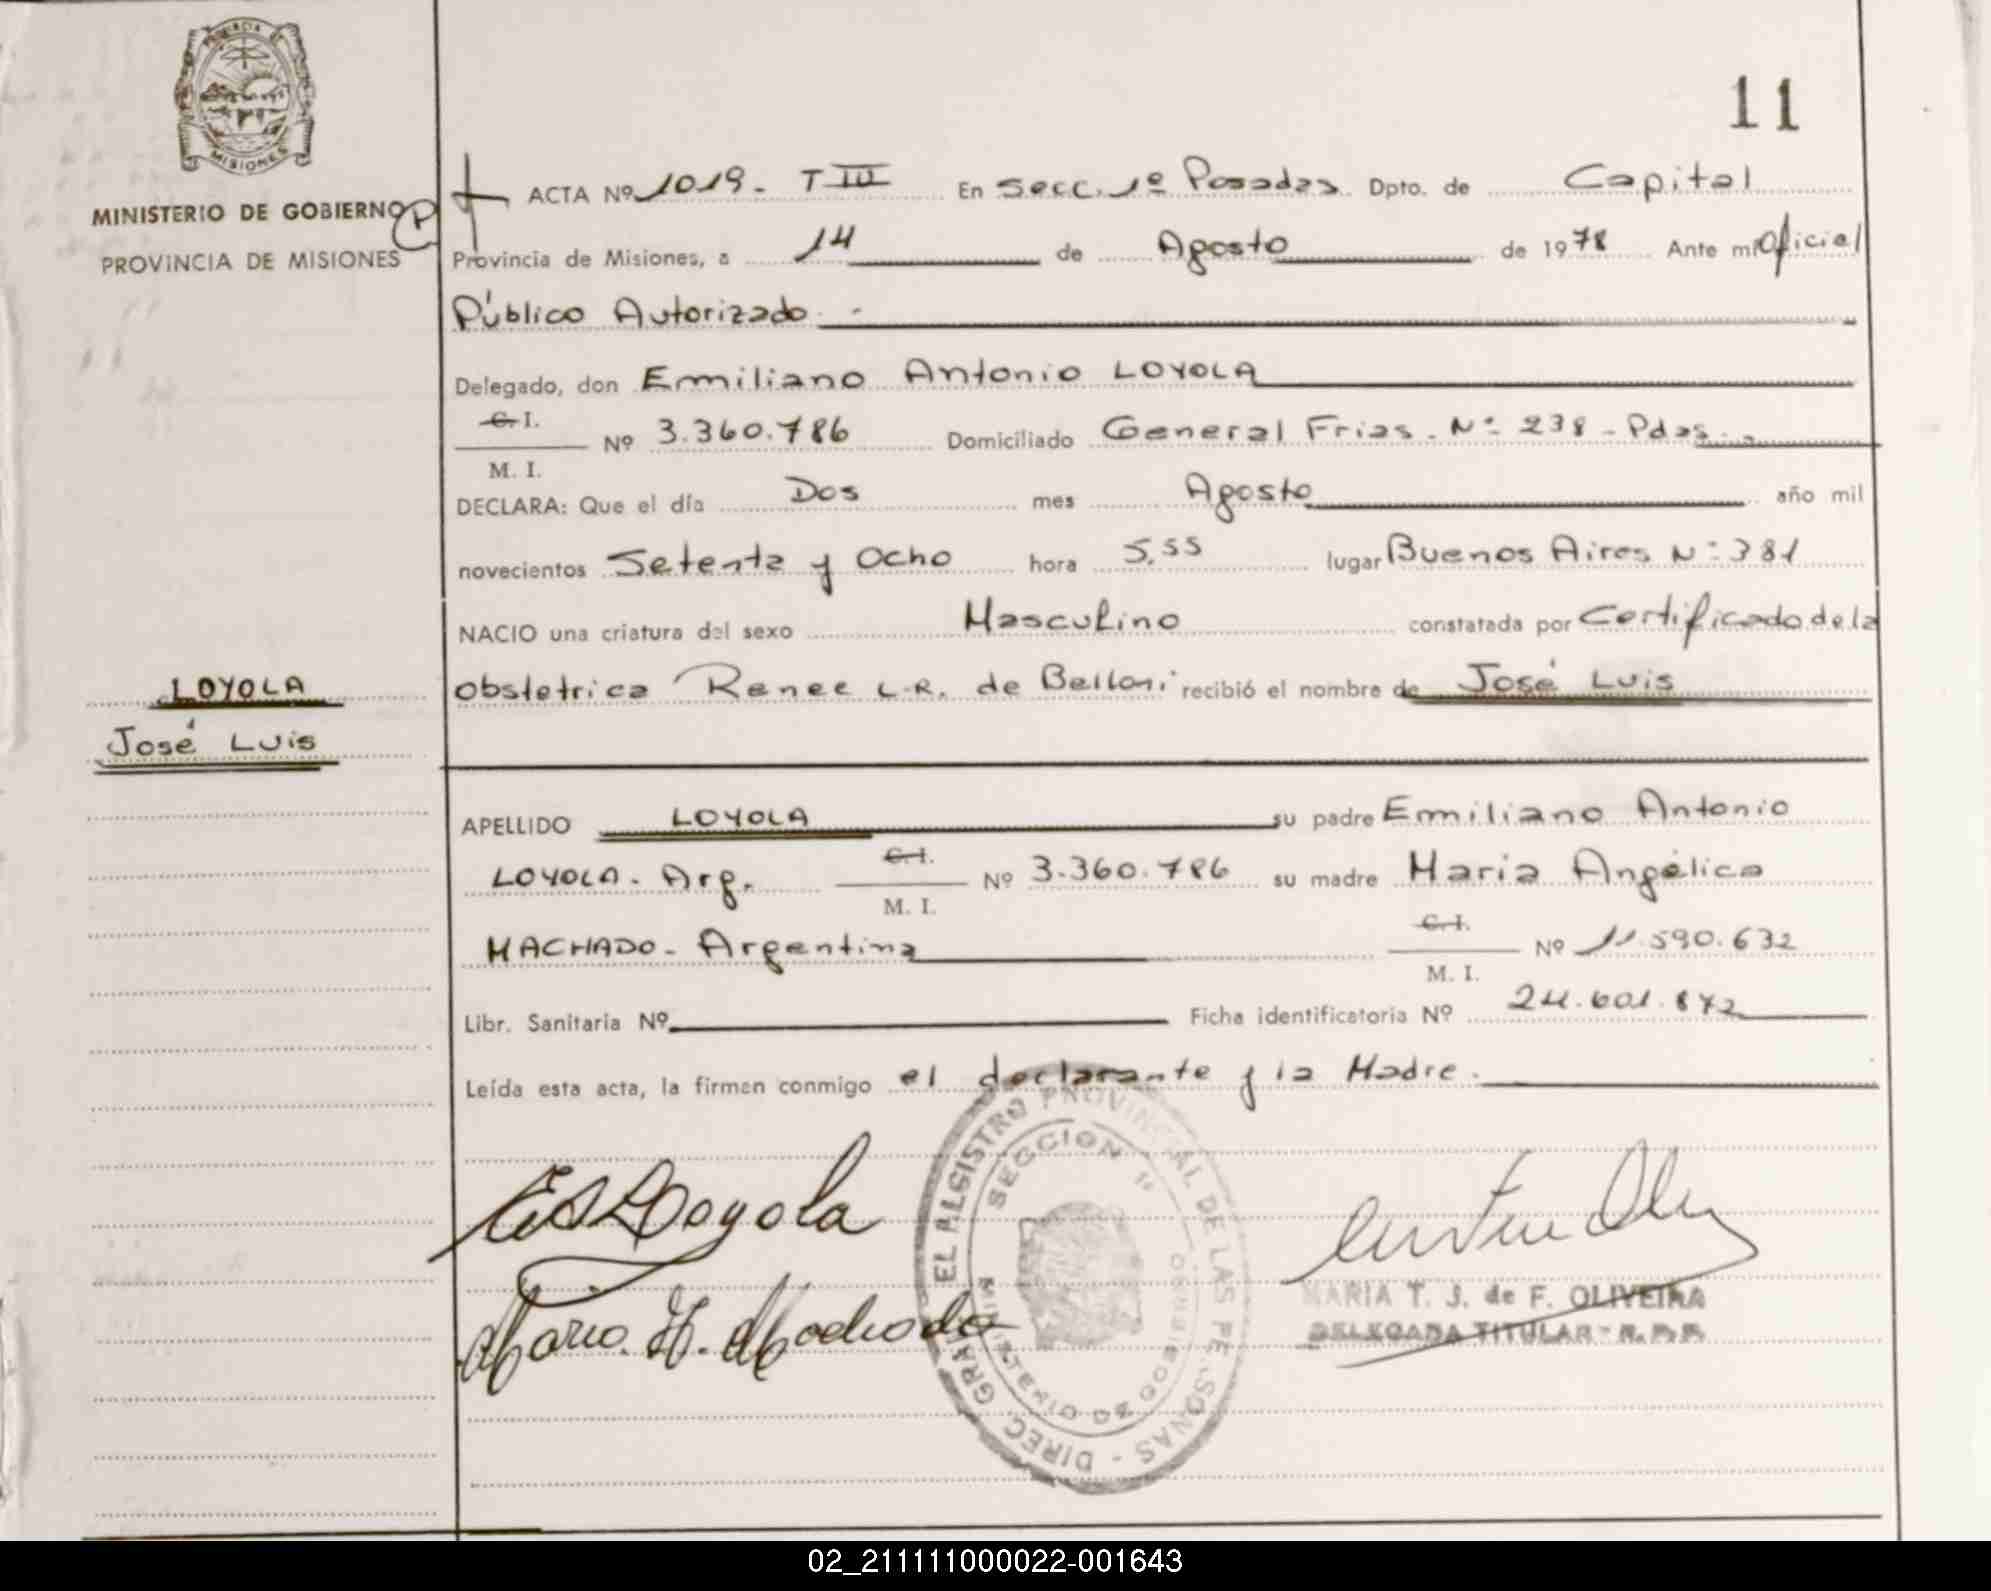 PROVINCIA DE
MISIONES
MINISTERIO DE GOBIERNO P
PROVINCIA DE MISIONES
LOYOLA
José Luis
11
ACTA Nº 1019. T III En Secc. 1º Posadas Dpto. de Capital
Provincia de Misiones, a 14 de Agosto de 1978 Ante mi Oficial
Público Autorizado.-
Delegado, don Emiliano Antonio LOYOLA
C. I.
M. I. Nº 3.360.786 Domiciliado General Frias. Nº 238 - Pdas.
DECLARA: Que el día Dos mes Agosto año mil
novecientos Setenta y Ocho hora 5.55 lugar Buenos Aires Nº 381
NACIO una criatura del sexo Masculino constatada por Certificado de la
obstetrica Renee L.R. de Belloni recibió el nombre de José Luis
APELLIDO LOYOLA su padre Emiliano Antonio
LOYOLA - Arg. C. I. M. I. Nº 3.360.786 su madre Maria Angélica
MACHADO - Argentina C. I. M. I. Nº 11.590.632
Libr. Sanitaria Nº Ficha identificatoria Nº 24.601.872
Leída esta acta, la firman conmigo el declarante y la Madre.
EA Loyola
Maria. A. Machado
DIREC. GRAL. DEL REGISTRO PROVINCIAL DE LAS PERSONAS -
SECCION 1º
MINISTERIO DE GOBIERNO
MARIA T. J. de F. OLIVEIRA
DELEGADA TITULAR - R. P. P.
02_211111000022-001643